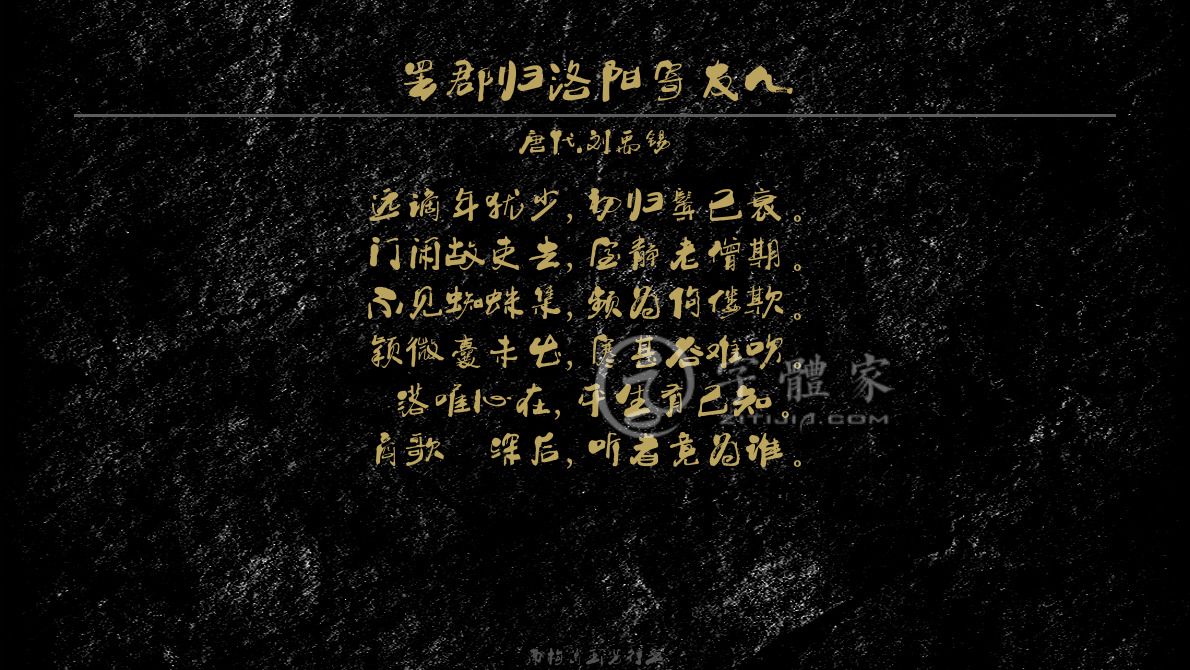 罢郡归洛阳寄友人
唐代.刘禹锡
远谪年犹少,初归鬓已衰。
门闲故吏去,室静老僧期。
不见蜘蛛集,频为佝偻欺。
颖微囊未出,寒甚谷难吹。
落唯心在,平生有己知。
商歌 深后,听者竟为谁。
字體家
ZITIJIA.COM